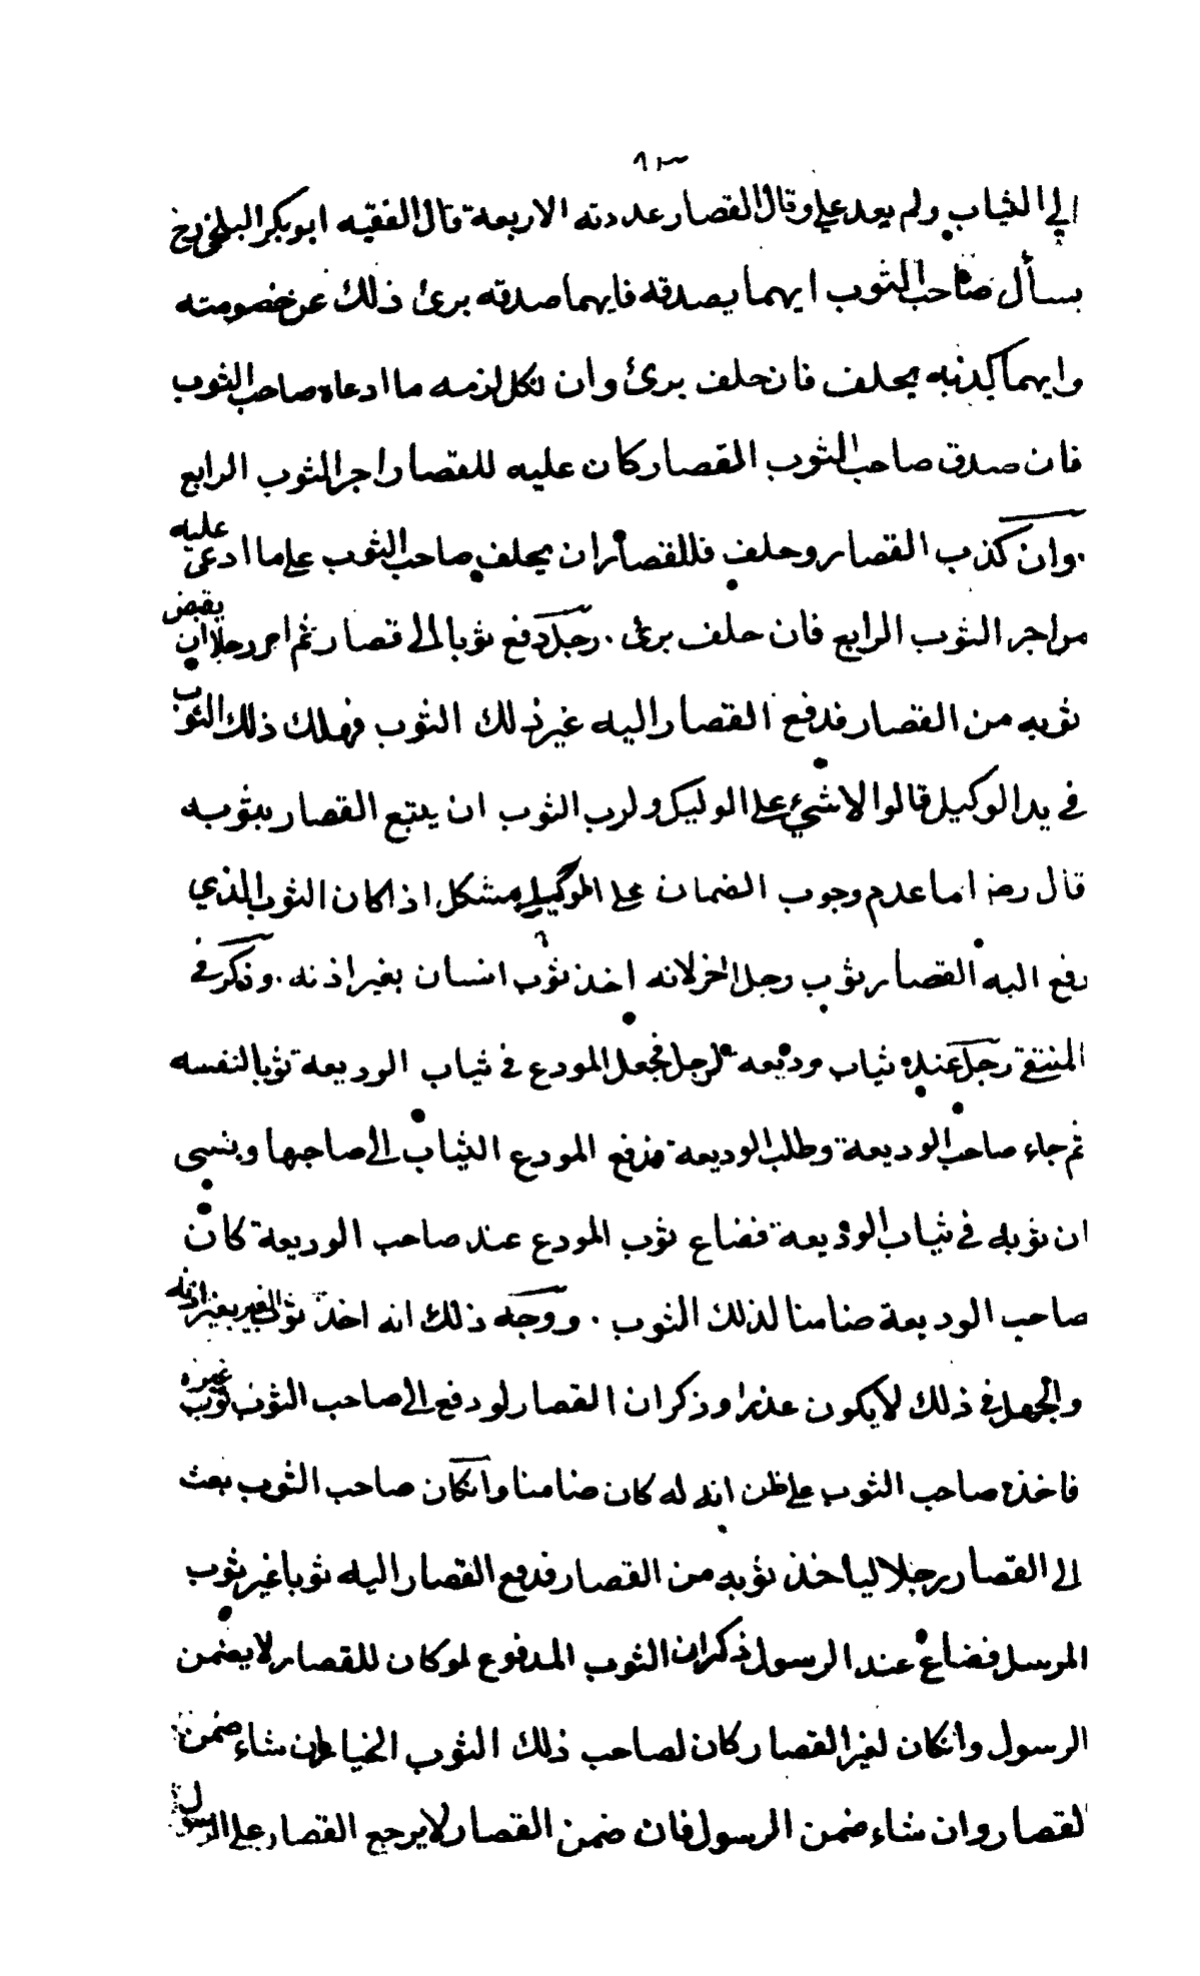 الي الثياب ولم يعد علي وقال القصار عددته الاربعة قال الفقيه ابوبكر البلخي رح
يسأل صاحب الثوب ايهما يصدقه فايهما صدقه برئ ذلك عن خصومته
وايهما كذبه يحلف فان حلف برئ وان نكل لزمه ما ادعاه صاحب الثوب
فان صدق صاحب الثوب القصار كان عليه للقصار اجر الثوب الرابع
وان كذب القصار وحلف فللقصار ان يحلف صاحب الثوب على ما ادعى عليه
من اجر الثوب الرابع فان حلف برئ . رجل دفع ثوبا الى قصار ثم امر رجلا ان يقبض
ثوبه من القصار فدفع القصار اليه غير ذلك الثوب فهلك ذلك الثوب
في يد الوكيل قالوا لا شيء على الوكيل ولرب الثوب ان يتبع القصار بثوبه
قال رضه اما عدم وجوب الضمان على الوكيل مشكل اذا كان الثوب الذي
دفع اليه القصار ثوب رجل اخر لانه اخذ ثوب انسان بغير اذنه . وذكر في
المنتقى رجل عنده ثياب وديعة لرجل فجعل المودع في ثياب الوديعة ثوبا لنفسه
ثم جاء صاحب الوديعة وطلب الوديعة فدفع المودع الثياب الى صاحبها وينسى
ان ثوبه في ثياب الوديعة فضاع ثوب المودع عند صاحب الوديعة كان
صاحب الوديعة ضامنا لذلك الثوب . ووجه ذلك انه اخذ ثوب الغير بغير اذنه
والجهل في ذلك لا يكون عذرا وذكر ان القصار لو دفع الى صاحب الثوب ثوب غيره
فاخذه صاحب الثوب على ظن انه له كان ضامنا وان كان صاحب الثوب بعث
الى القصار رجلا لياخذ ثوبه من القصار فدفع القصار اليه ثوبا غير ثوب
المرسل فضاع عند الرسول ذكر ان الثوب المدفوع لو كان للقصار لا يضمن
الرسول وان كان لغير القصار كان لصاحب ذلك الثوب الخيار ان شاء ضمن
القصار وان شاء ضمن الرسول فان ضمن القصار لا يرجع القصار على الرسول